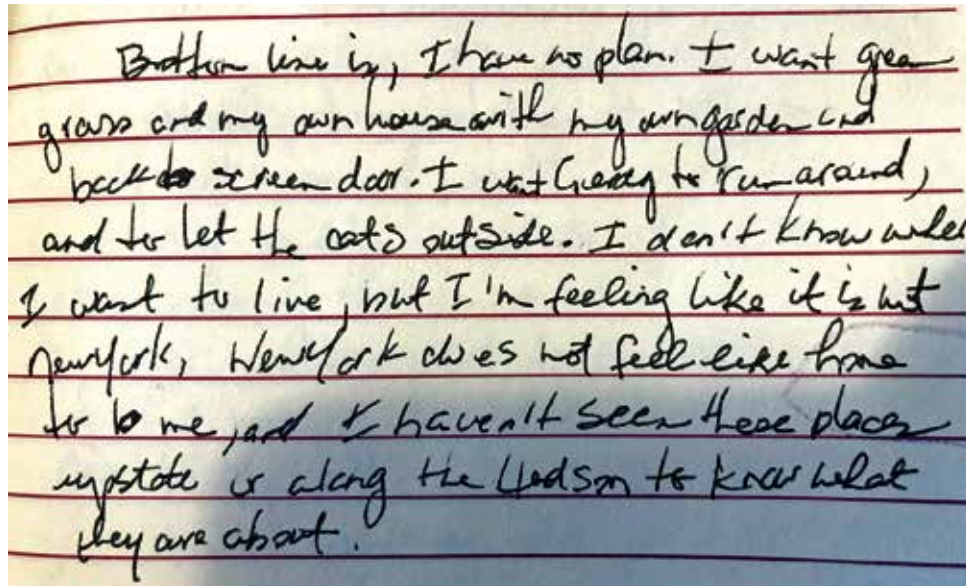 Bottom line is, I have no plan. I want green
grass and my own house with my own garden and
back screen door. I want to run around,
and to let the cats outside. I don't know where
I want to live, but I'm feeling like it is not
New York, New York does not feel like home
to me, and I haven't seen these places
upstate or along the Hudson to know what
they are about.